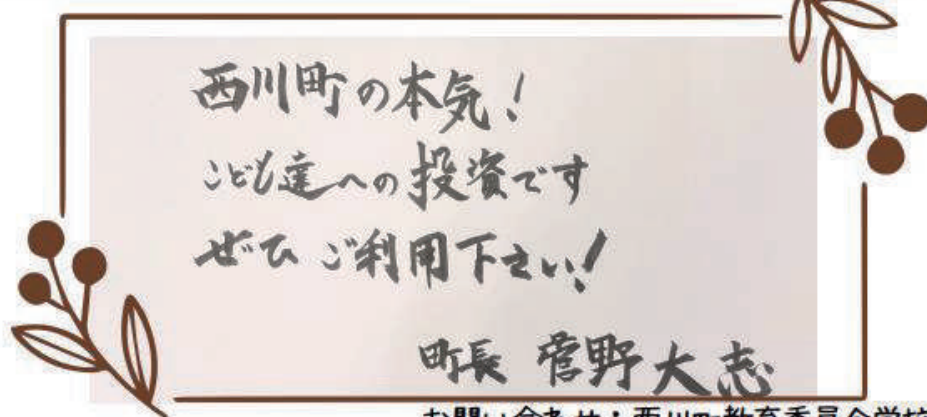 西川町の本気！
こども達への投資です
ぜひ ご利用下さい！
町長 菅野大志
お問い合わせ：西川町教育委員会学校